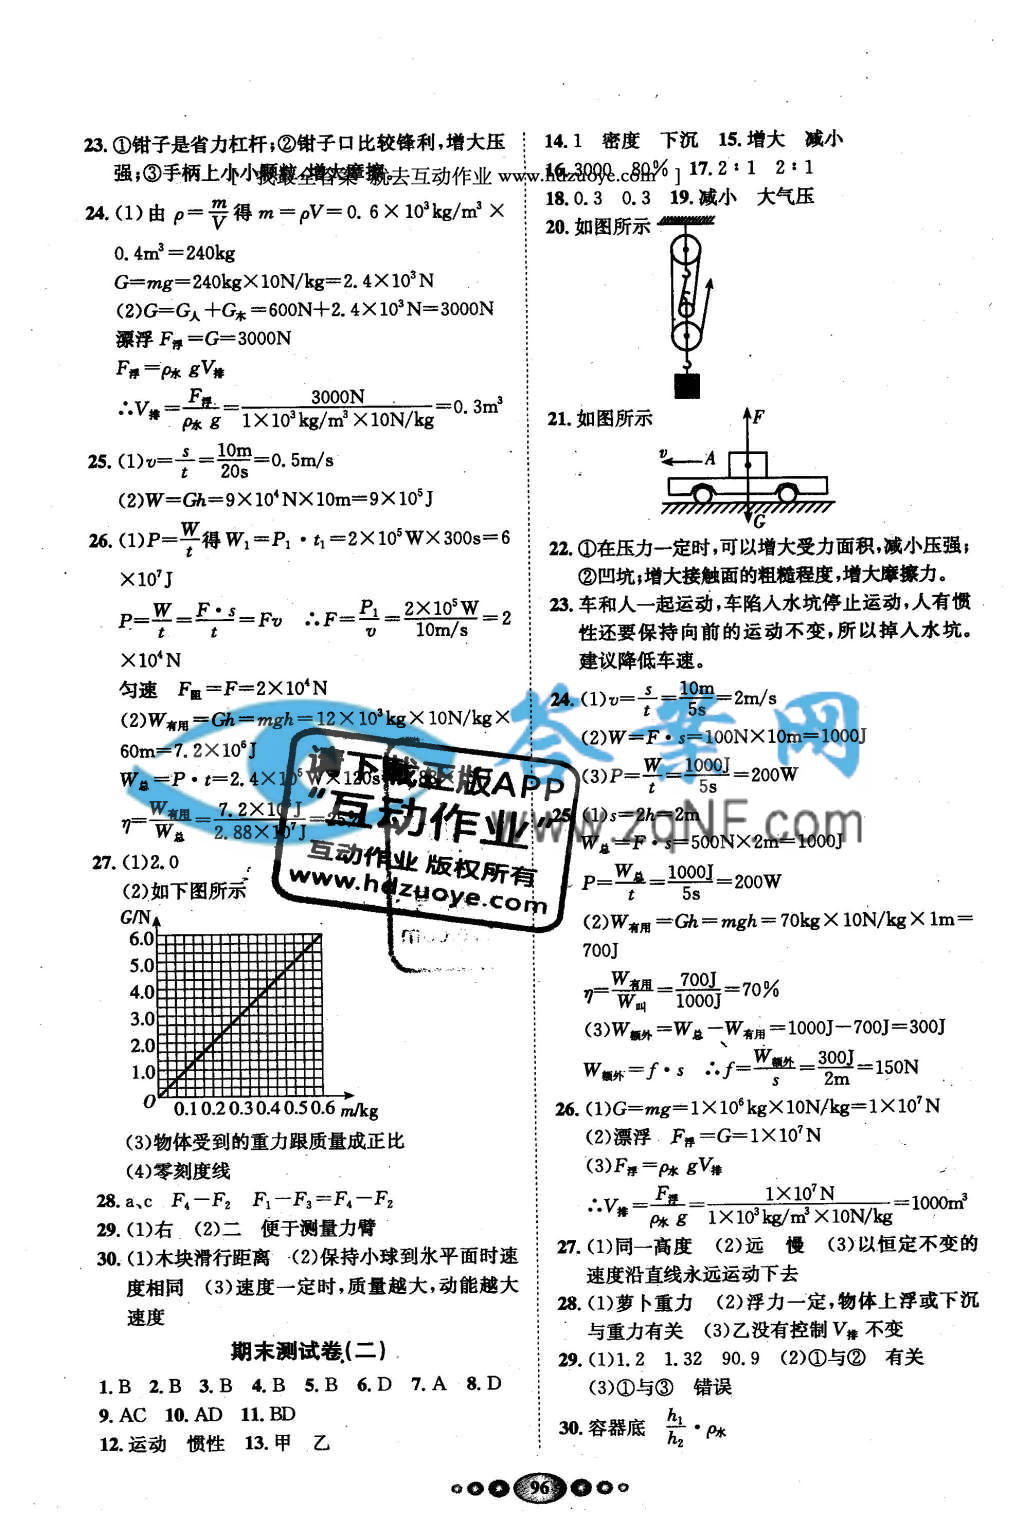 23. ①钳子是省力杠杆;②钳子口比较锋利,增大压
强;③手柄上小小颗粒,增大摩擦.
www.hdzuoye.com ]
24. (1)由 ρ=m/V 得 m=ρV=0.6×10³kg/m³×
0.4m³=240kg
G=mg=240kg×10N/kg=2.4×10³N
(2)G=G人+G木=600N+2.4×10³N=3000N
漂浮 F浮=G=3000N
F浮=ρ水gV排
∴V排=F浮/ρ水g=3000N/1×10³kg/m³×10N/kg=0.3m³
25. (1)v=s/t=10m/20s=0.5m/s
(2)W=Gh=9×10⁴N×10m=9×10⁵J
26. (1)P=W/t得 W₁=P₁·t₁=2×10⁵W×300s=6
×10⁷J
P=W/t=F·s/t=Fv ∴F=P₁/v=2×10⁵W/10m/s=2
×10⁴N
匀速 F阻=F=2×10⁴N
(2)W有用=Gh=mgh=12×10³kg×10N/kg×
60m=7.2×10⁶J
W总=P·t=2.4×10⁵W×120s
η=W有用/W总=7.2×10⁶J/2.88×10⁷J
27. (1)2.0
(2)如下图所示
G/N
6.0
5.0
4.0
3.0
2.0
1.0
O
0.1 0.2 0.3 0.4 0.5 0.6 m/kg
(3)物体受到的重力跟质量成正比
(4)零刻度线
28. a、c F₄−F₂ F₁−F₃=F₄−F₂
29. (1)右 (2)二 便于测量力臂
30. (1)木块滑行距离 (2)保持小球到水平面时速
度相同 (3)速度一定时,质量越大,动能越大
速度
期末测试卷(二)
1. B 2. B 3. B 4. B 5. B 6. D 7. A 8. D
9. AC 10. AD 11. BD
12. 运动 惯性 13. 甲 乙
14. 1 密度 下沉 15. 增大 减小
16. 3000 80% 17. 2∶1 2∶1
18. 0.3 0.3 19. 减小 大气压
20. 如图所示
21. 如图所示
F
v
A
G
22. ①在压力一定时,可以增大受力面积,减小压强;
②凹坑;增大接触面的粗糙程度,增大摩擦力。
23. 车和人一起运动,车陷入水坑停止运动,人有惯
性还要保持向前的运动不变,所以掉入水坑。
建议降低车速。
24. (1)v=s/t=10m/5s=2m/s
(2)W=F·s=100N×10m=1000J
(3)P=W/t=1000J/5s=200W
25. (1)s=2h=2m
W总=F·s=500N×2m=1000J
P=W总/t=1000J/5s=200W
(2)W有用=Gh=mgh=70kg×10N/kg×1m=
700J
η=W有用/W叫=700J/1000J=70%
(3)W额外=W总−W有用=1000J−700J=300J
W额外=f·s ∴f=W额外/s=300J/2m=150N
26. (1)G=mg=1×10⁶kg×10N/kg=1×10⁷N
(2)漂浮 F浮=G=1×10⁷N
(3)F浮=ρ水gV排
∴V排=F浮/ρ水g=1×10⁷N/1×10³kg/m³×10N/kg=1000m³
27. (1)同一高度 (2)远 慢 (3)以恒定不变的
速度沿直线永远运动下去
28. (1)萝卜重力 (2)浮力一定,物体上浮或下沉
与重力有关 (3)乙没有控制V排不变
29. (1)1.2 1.32 90.9 (2)①与② 有关
(3)①与③ 错误
30. 容器底 h₁/h₂·ρ水
96
请下载正版APP
“互动作业”
互动作业 版权所有
www.hdzuoye.com
答案网
www.zqNF.com